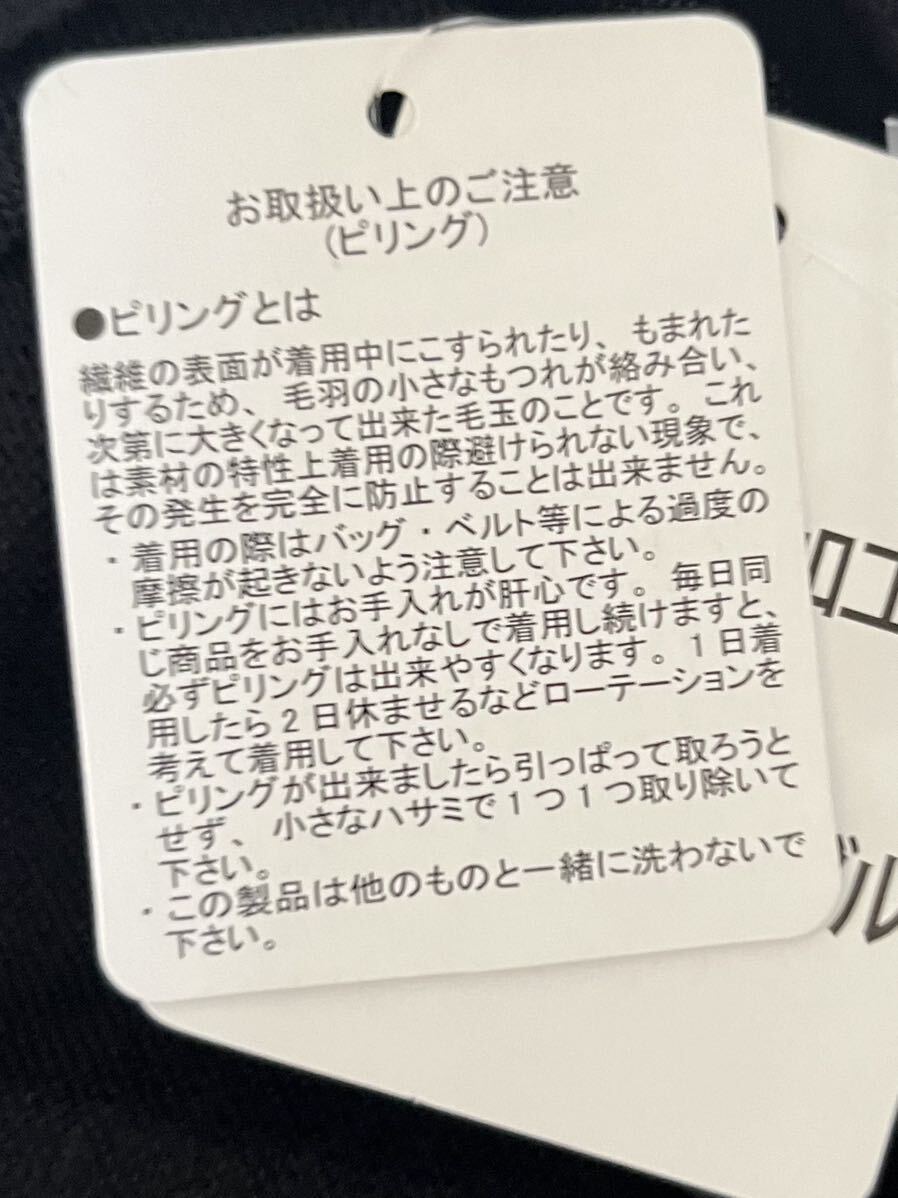 お取扱い上のご注意
(ピリング)
●ピリングとは
繊維の表面が着用中にこすられたり、もまれた
りするため、毛羽の小さなもつれが絡み合い、
次第に大きくなって出来た毛玉のことです。これ
は素材の特性上着用の際避けられない現象で、
その発生を完全に防止することは出来ません。
・着用の際はバッグ・ベルト等による過度の
摩擦が起きないよう注意して下さい。
・ピリングにはお手入れが肝心です。毎日同
じ商品をお手入れなしで着用し続けますと、
必ずピリングは出来やすくなります。1日着
用したら2日休ませるなどローテーションを
考えて着用して下さい。
・ピリングが出来ましたら引っぱって取ろうと
せず、小さなハサミで1つ1つ取り除いて
下さい。
・この製品は他のものと一緒に洗わないで
下さい。